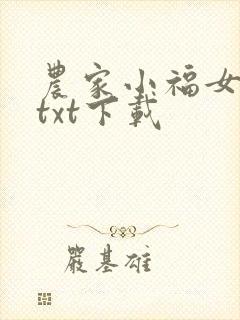 農家小福女
txt下載
嚴基雄